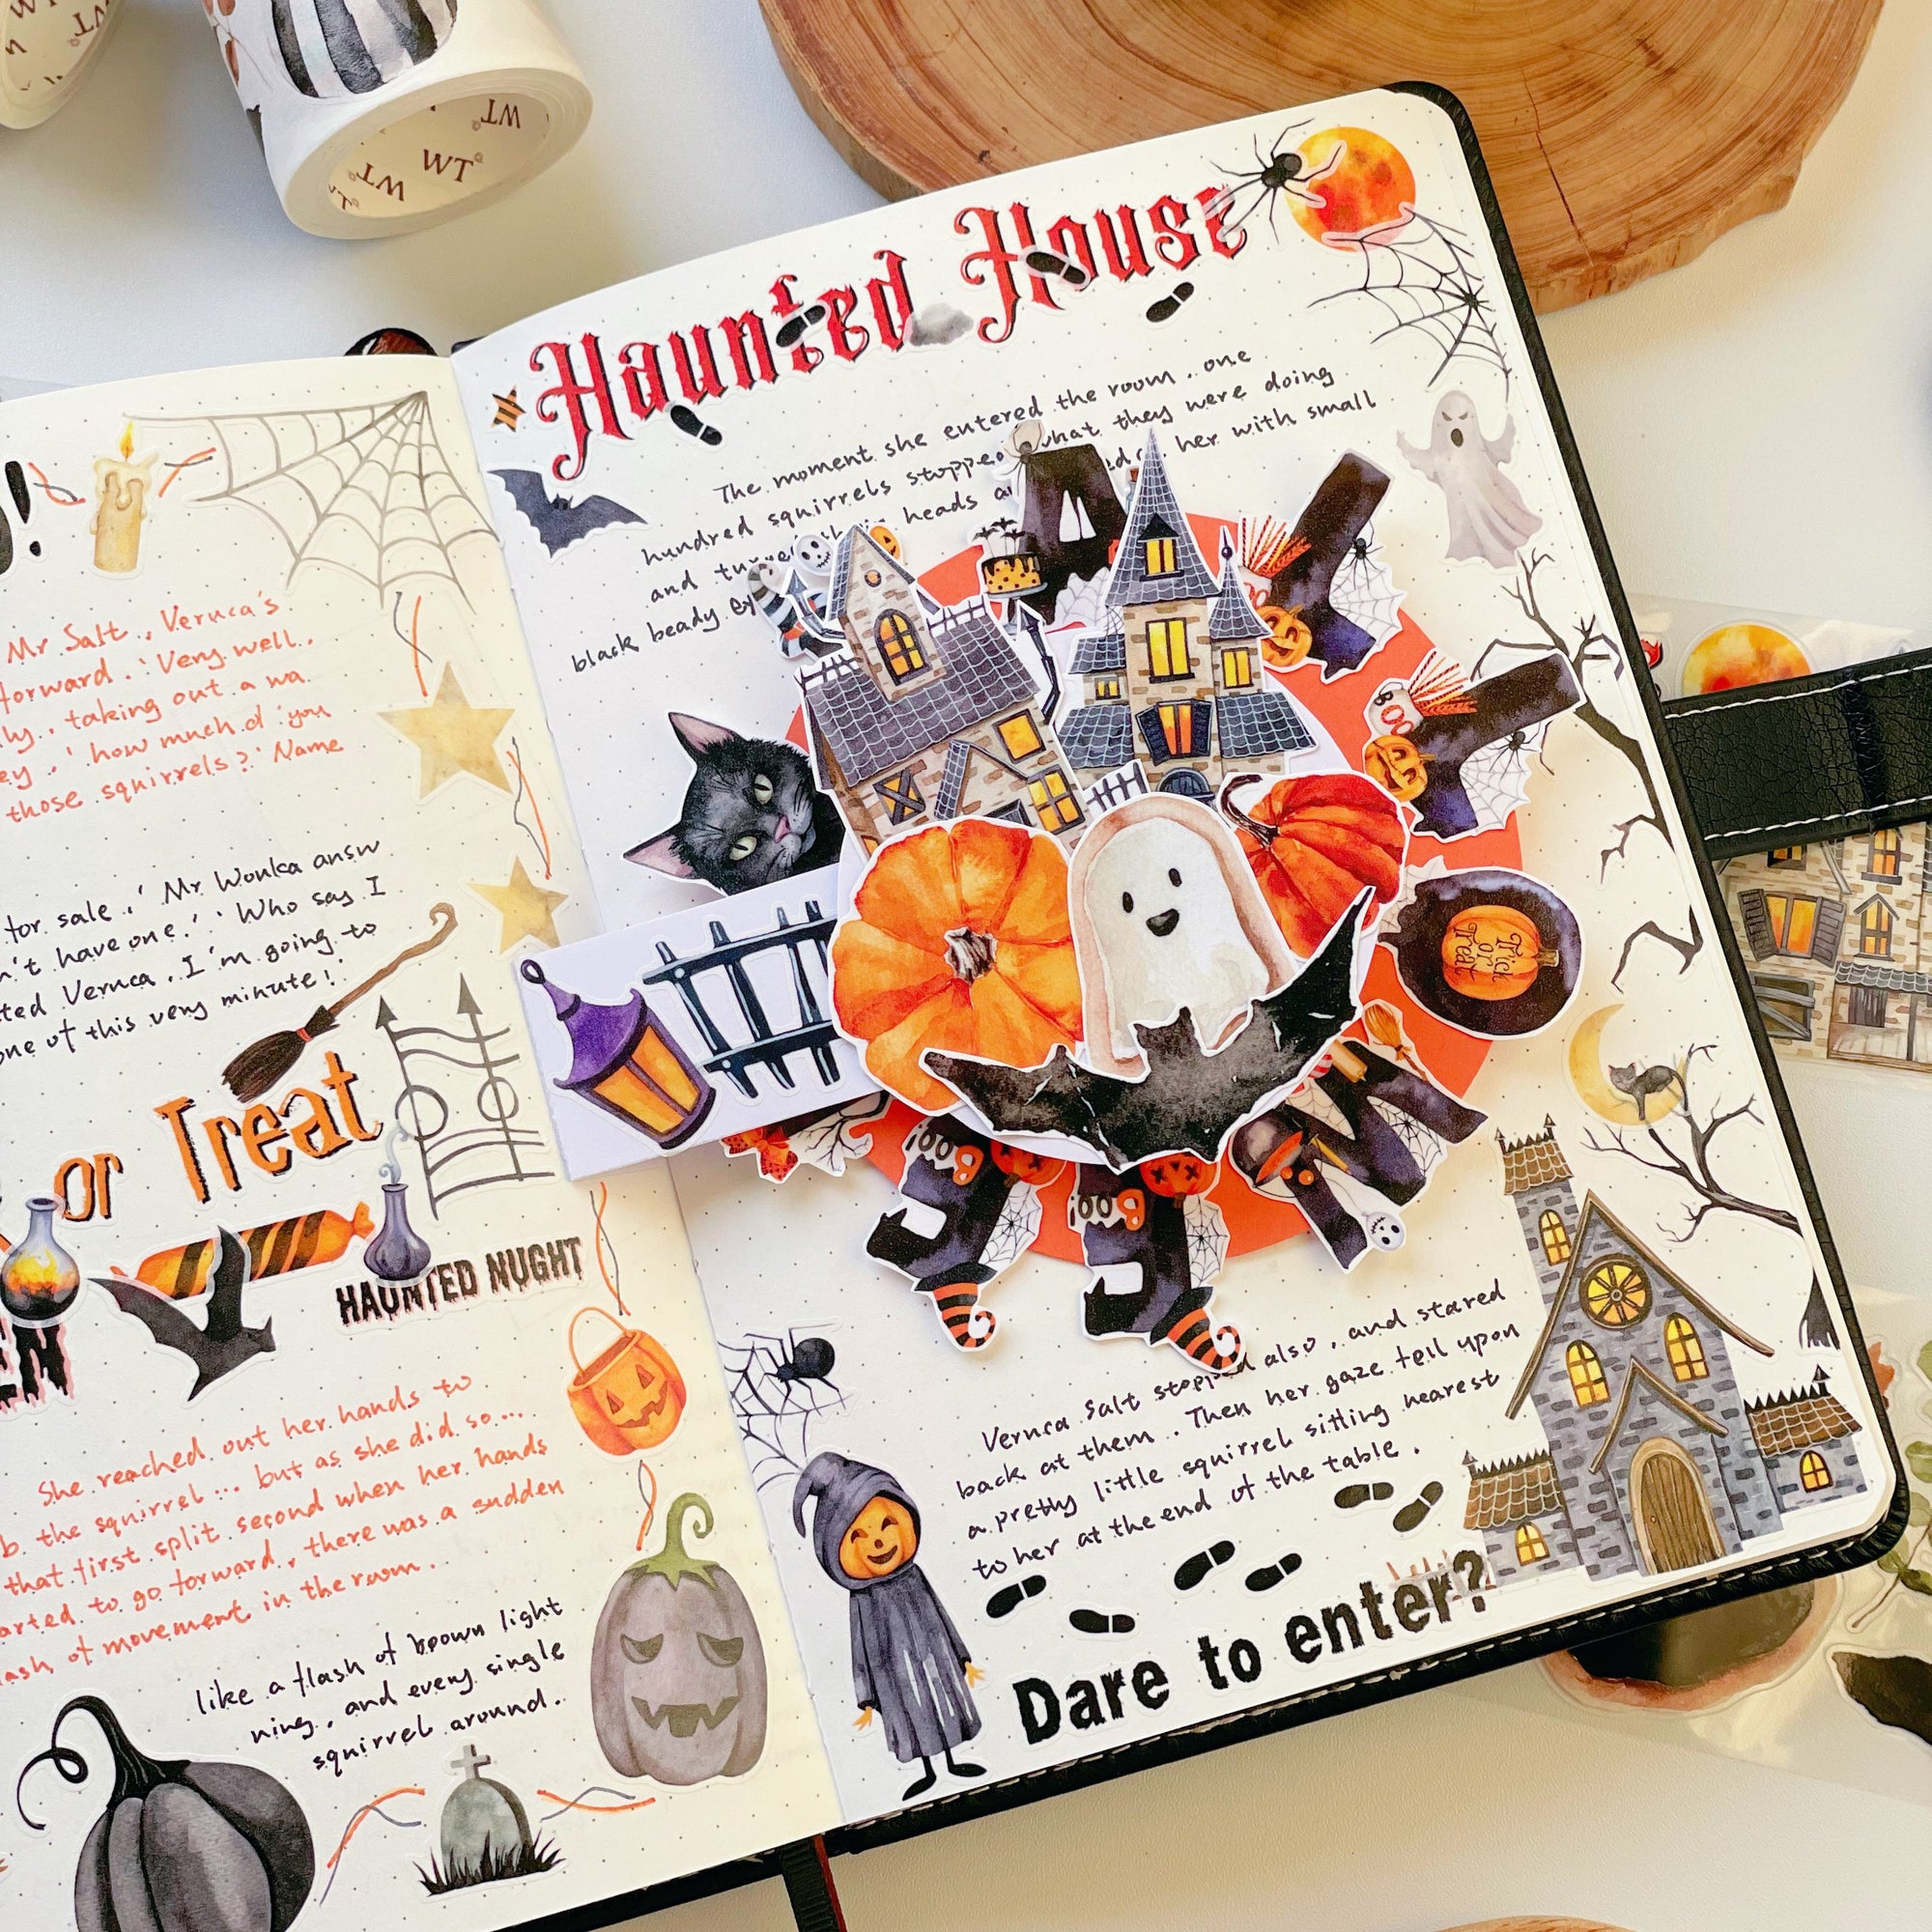 WT
WT
WT
WT
Mr Salt, Veruca's
forward. 'Very well,
taking out a wa
ey, 'how much d'you
those squirrels?' Name
for sale,' Mr Wonka answ
n't have one.' 'Who say I
ted Veruca. I'm going to
one of this very minute!'
or Treat
HAUNTED NUGHT
EN
She reached out her hands to
b the squirrel... but as she did so...
that first split second when her hands
arted to go forward, there was a sudden
ash of movement in the room.
like a flash of brown light
ning, and every single
squirrel around.
Haunted House
The moment she entered the room, one
hundred squirrels stopped what they were doing
and turned their heads her with small
black beady ey
A
BOO
BOO
Trick
or
Treat
M
BOO
BOO
Veruca Salt stopped also, and stared
back at them. Then her gaze fell upon
a pretty little squirrel sitting nearest
to her at the end of the table.
Dare to enter?